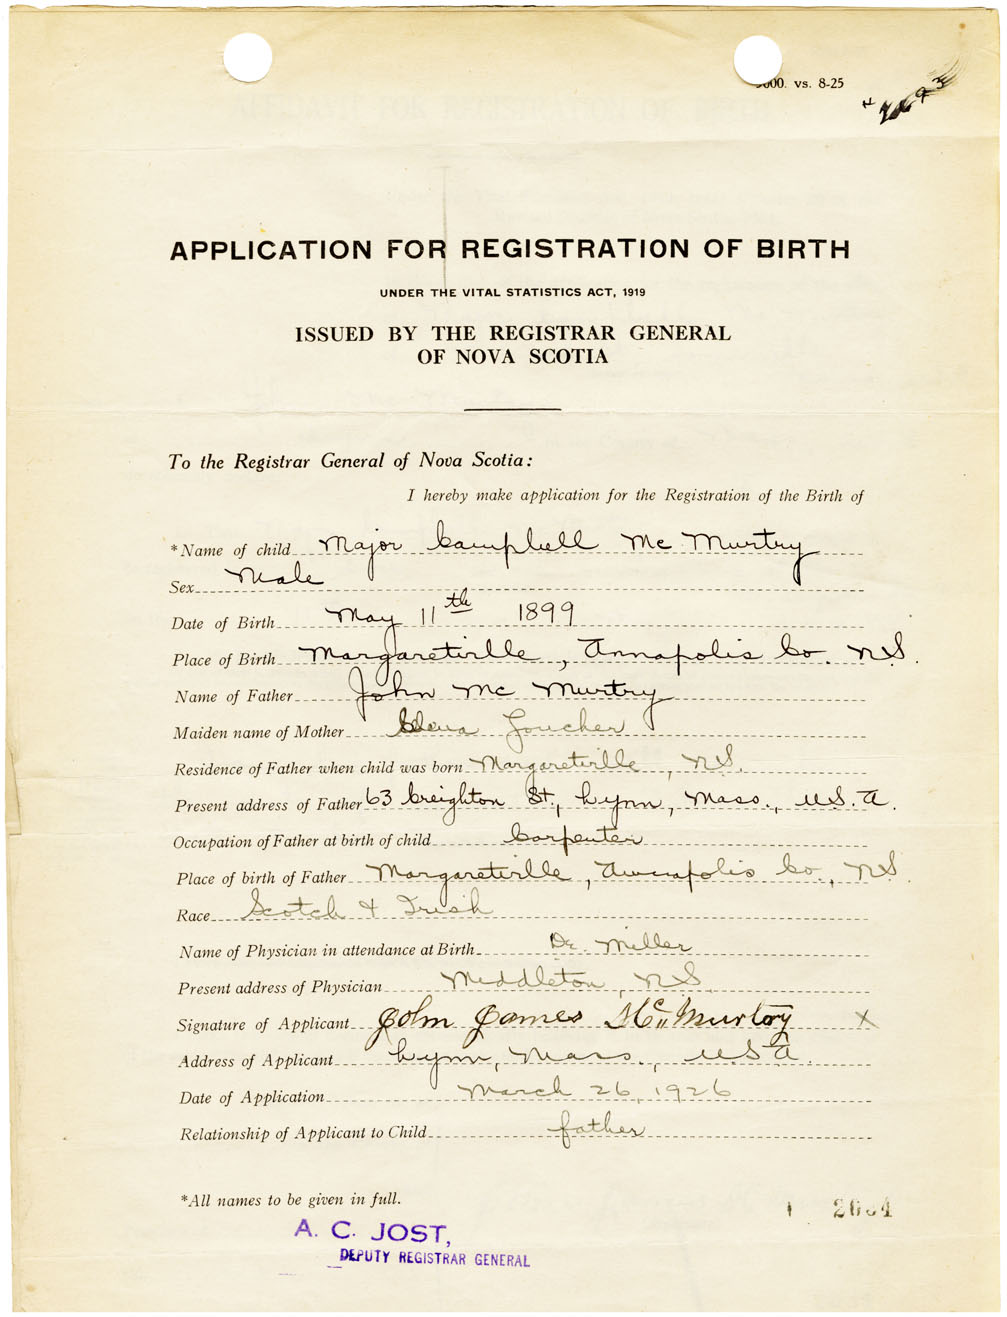 000. vs. 8-25
APPLICATION FOR REGISTRATION OF BIRTH
UNDER THE VITAL STATISTICS ACT, 1919
ISSUED BY THE REGISTRAR GENERAL
OF NOVA SCOTIA
To the Registrar General of Nova Scotia:
I hereby make application for the Registration of the Birth of
*Name of child Major Campbell Mc Murtry
Sex Male
Date of Birth May 11th 1899
Place of Birth Margaretville, Annapolis Co. N.S.
Name of Father John Mc Murtry
Maiden name of Mother Goucher
Residence of Father when child was born Margaretville, N.S.
Present address of Father 63 Creighton St, Lynn, Mass., U.S.A.
Occupation of Father at birth of child Carpenter
Place of birth of Father Margaretville, Annapolis Co., N.S.
Race Scotch & Irish
Name of Physician in attendance at Birth Dr. Miller
Present address of Physician Middleton, N.S.
Signature of Applicant John James McMurtry X
Address of Applicant Lynn, Mass., U.S.A.
Date of Application March 26, 1926
Relationship of Applicant to Child father
*All names to be given in full.
A. C. JOST,
DEPUTY REGISTRAR GENERAL